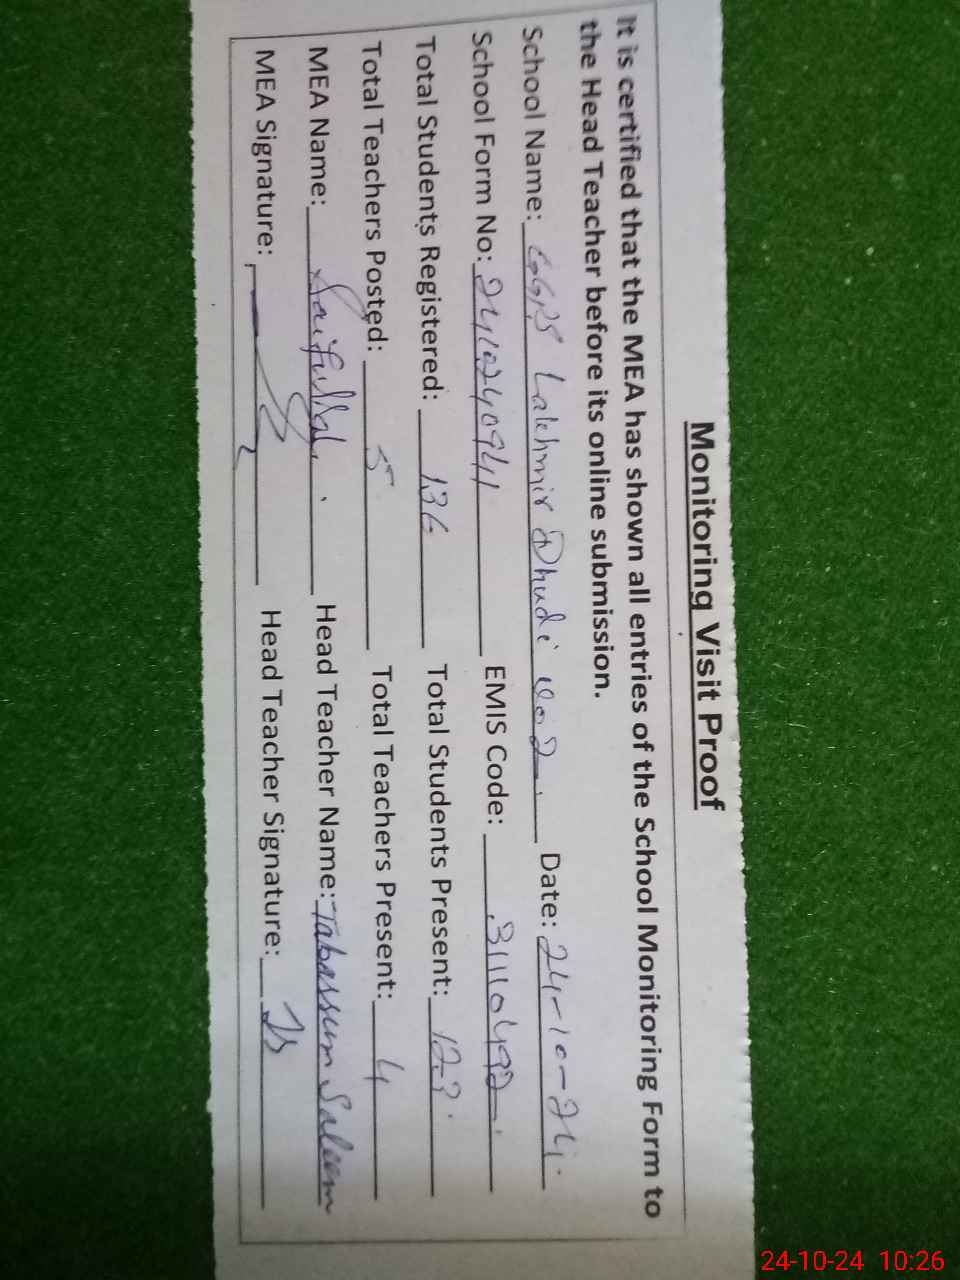 Monitoring Visit Proof
It is certified that the MEA has shown all entries of the School Monitoring Form to
the Head Teacher before its online submission.
School Name: GGPS Lakhmir Dhudi No 2 Date: 24-10-24
School Form No: 2410240941 EMIS Code: 31110492
Total Students Registered: 136 Total Students Present: 123
Total Teachers Posted: 5 Total Teachers Present: 4
MEA Name: Saifullah Head Teacher Name: Tabassum Saleem
MEA Signature: Head Teacher Signature:
24-10-24 10:26